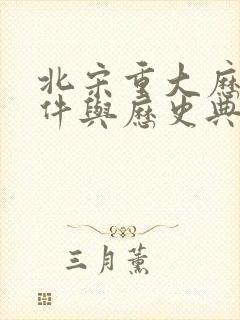 北宋重大歷
件與歷史典
三月薰